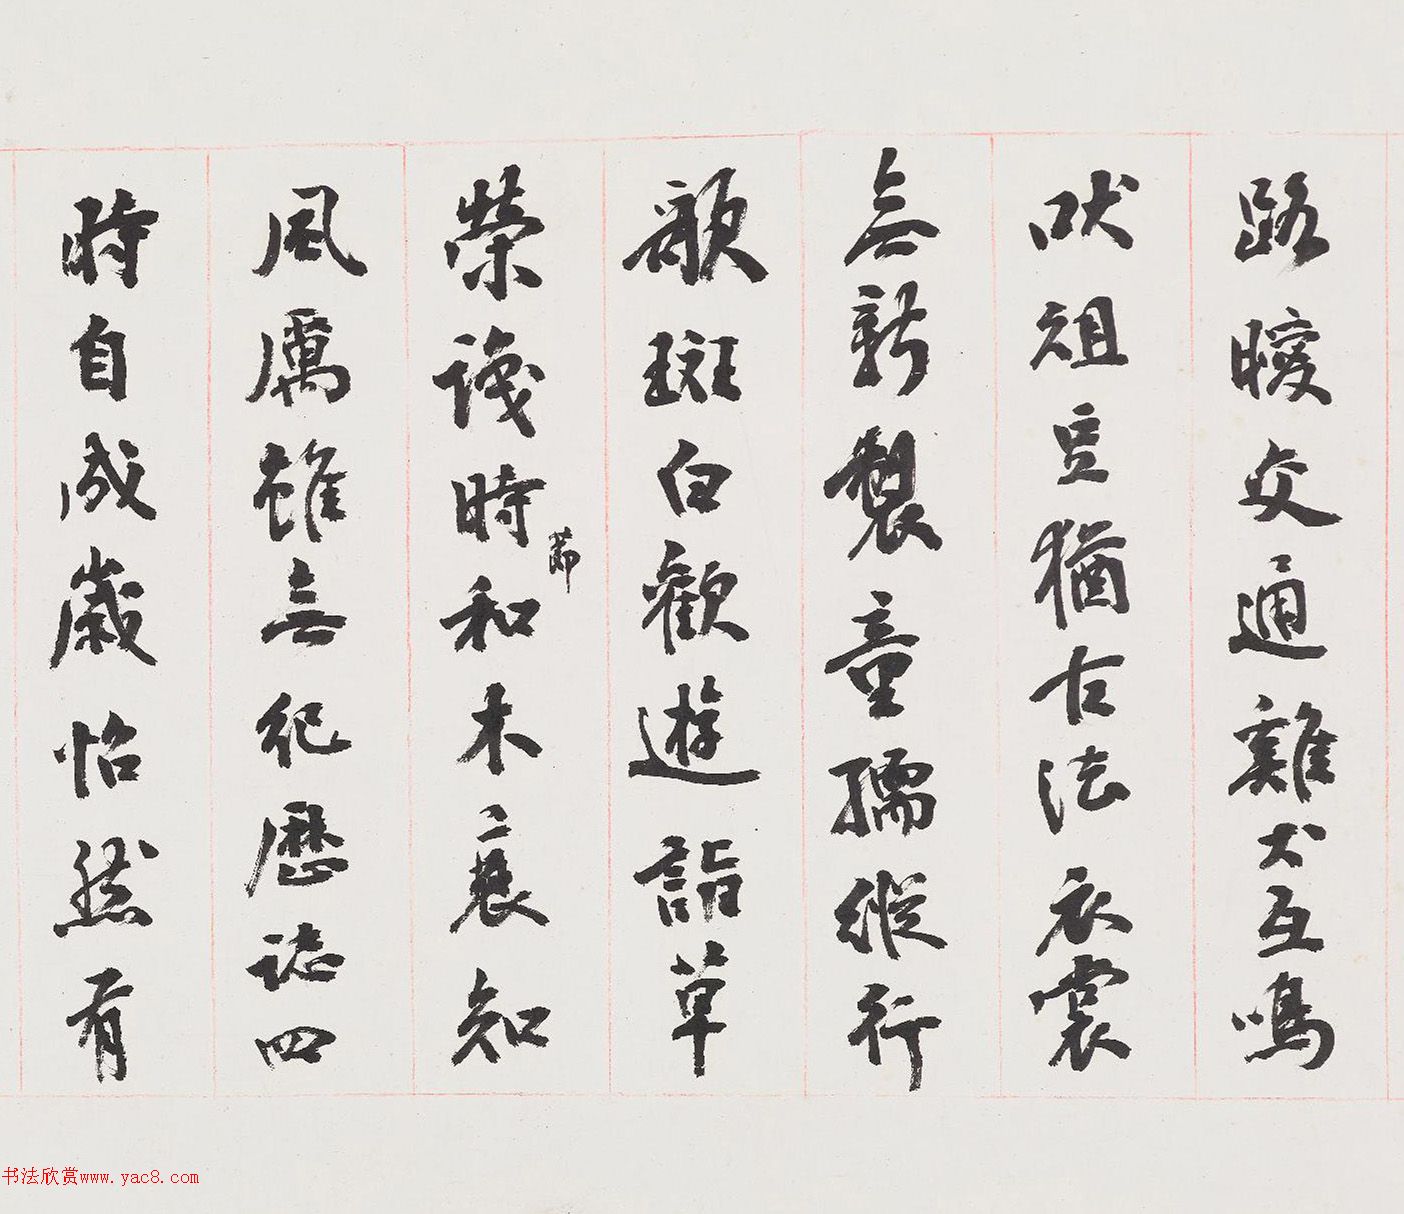 路曖交通雞犬互鳴
吠俎豆猶古法衣裳
無新製童孺縱行
歌斑白歡遊詣草
榮識時和木衰知
節
風厲雖無紀歷誌四
時自成歲怡然有
书法欣赏www.yac8.com